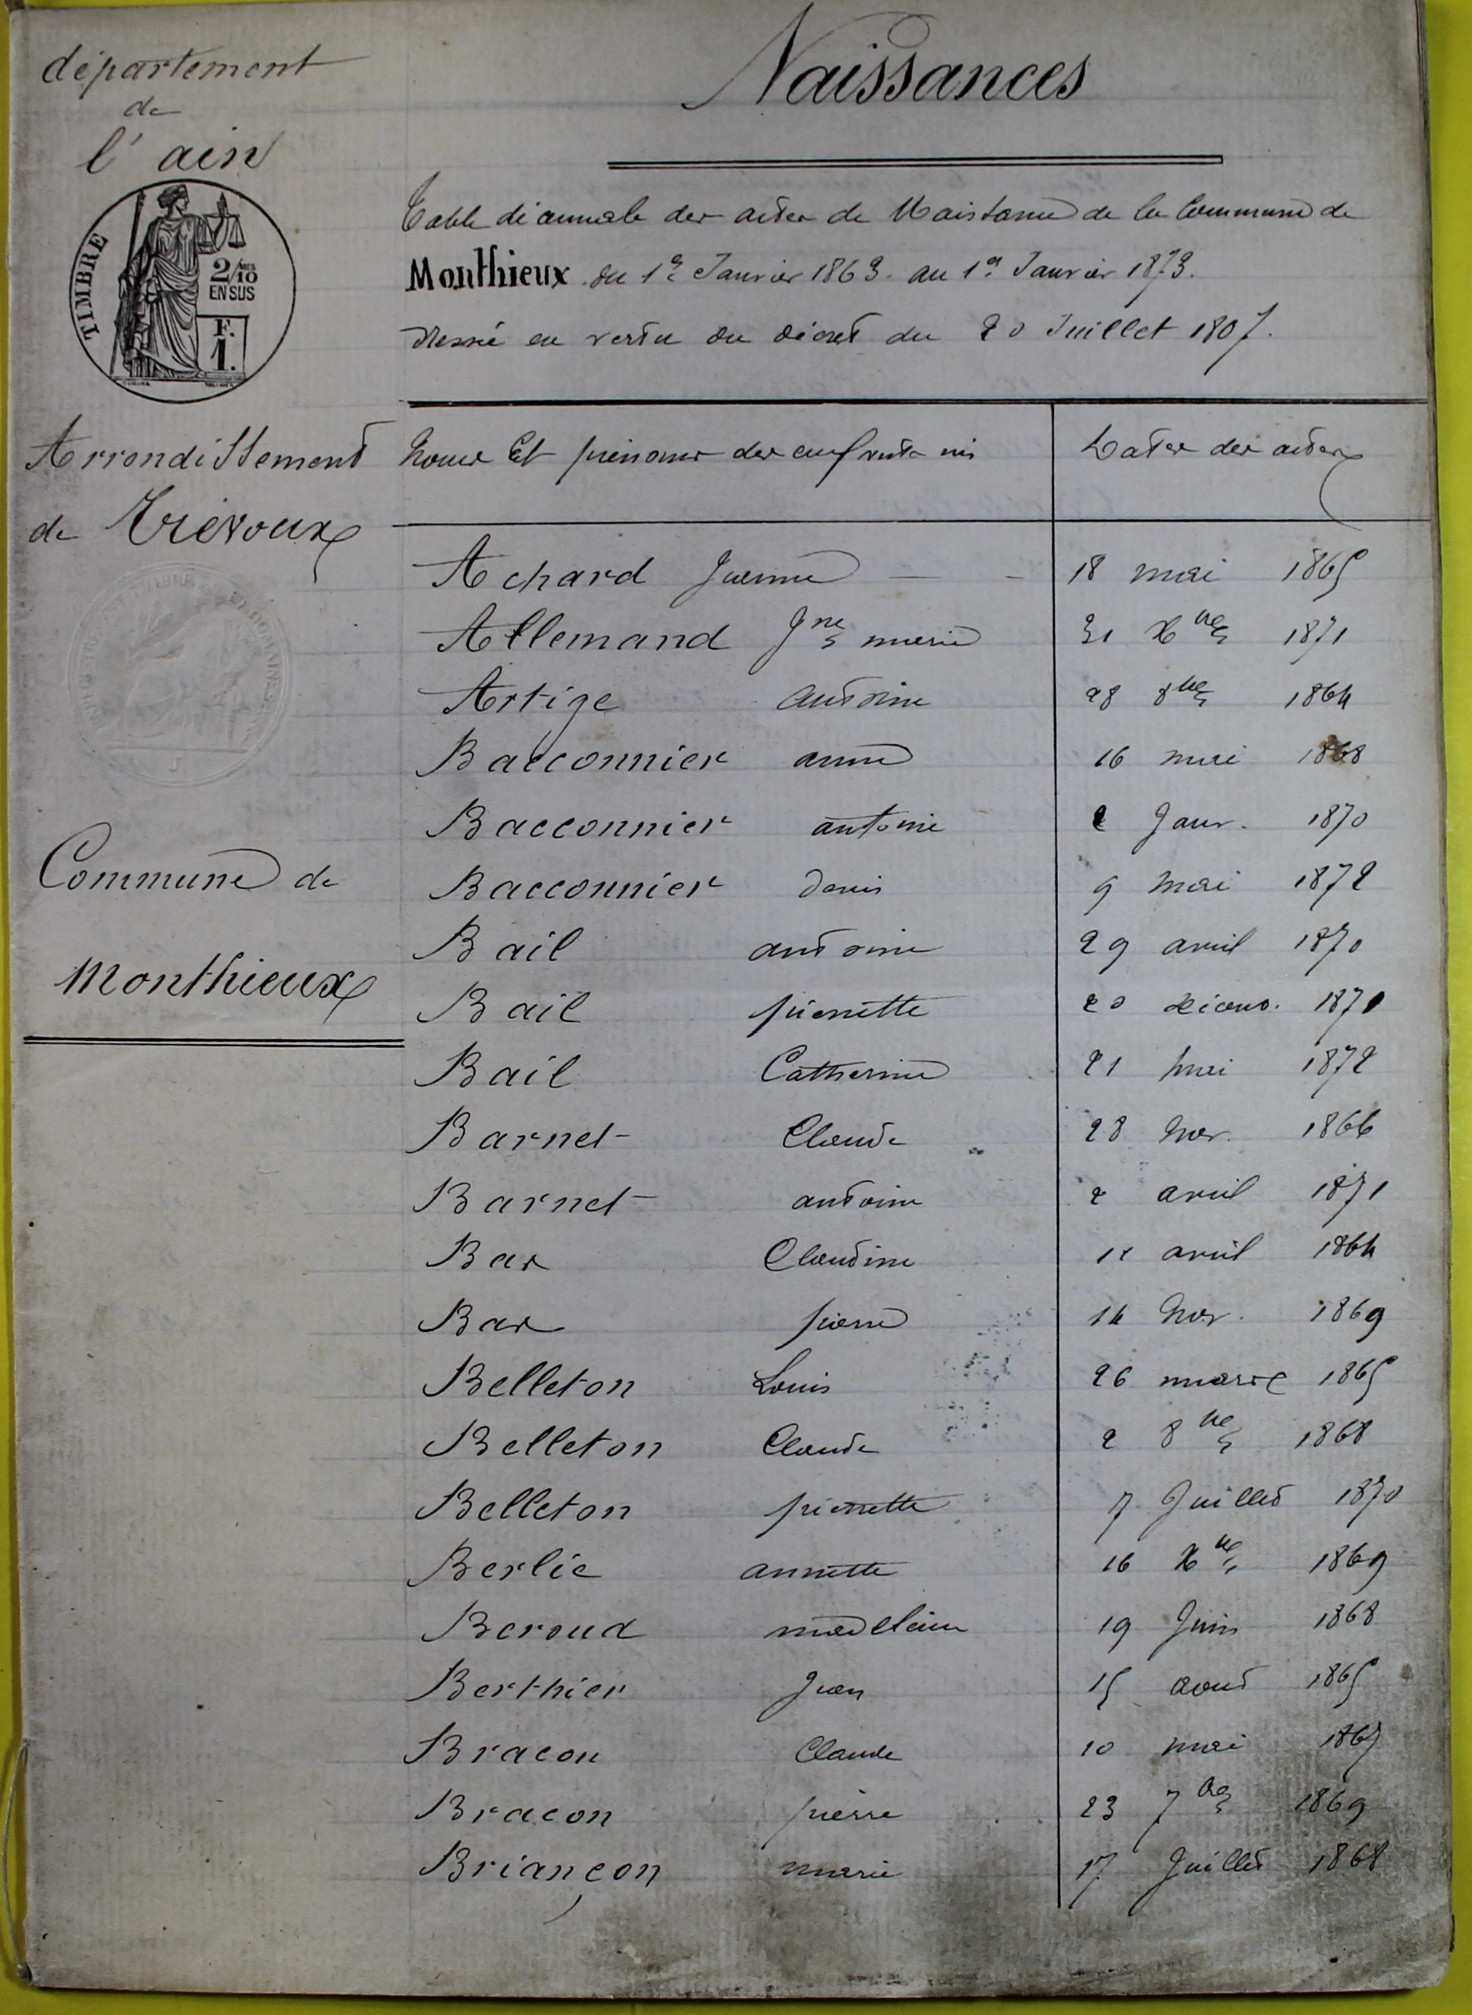 département
de
l'ain
TIMBRE
2/10 MES
EN SUS
F.
1.
Arrondissement
de Trévoux
Commune de
Monthieux
Naissances
Table décennale des actes de Naissance de la Commune de
Monthieux du 1er Janvier 1863 au 1er Janvier 1873.
dressé en vertu du décret du 20 Juillet 1807.
Noms Et prénoms des enfants nés Dates des actes
Achard Jeanne 18 mai 1865
Allemand Jne marie 31 Xbre 1871
Artige antoine 28 8bre 1864
Bacconnier anne 16 mai 1868
Bacconnier antoine 2 Janv. 1870
Bacconnier denis 9 mai 1872
Bail antoine 29 avril 1870
Bail pierrette 20 décemb. 1871
Bail Catherine 21 mai 1872
Barnet Claude 28 Nov. 1866
Barnet antoine 2 avril 1871
Bax Claudine avril 1864
Bax pierre 14 Nov. 1869
Belleton Louis 26 mars 1865
Belleton Claude 2 8bre 1868
Belleton pierrette 7 Juillet 1870
Berlie annette 16 Xbre 1869
Beroud madelaine 19 Juin 1868
Berthier Jean 15 aout 1865
Bracon Claude 10 mai 1867
Bracon pierre 23 7bre 1869
Briançon marie 17 Juillet 1868